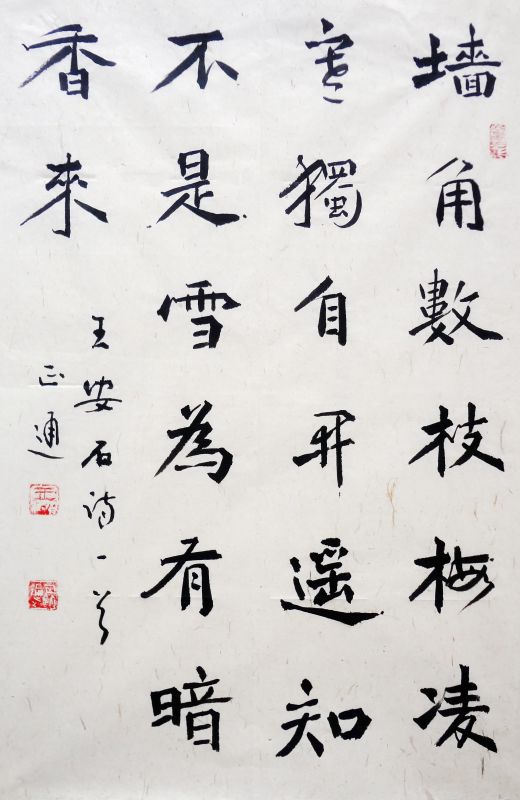 墙角數枝梅凌
寒獨自开遥知
不是雪為有暗
香來
王安石诗一首
正通